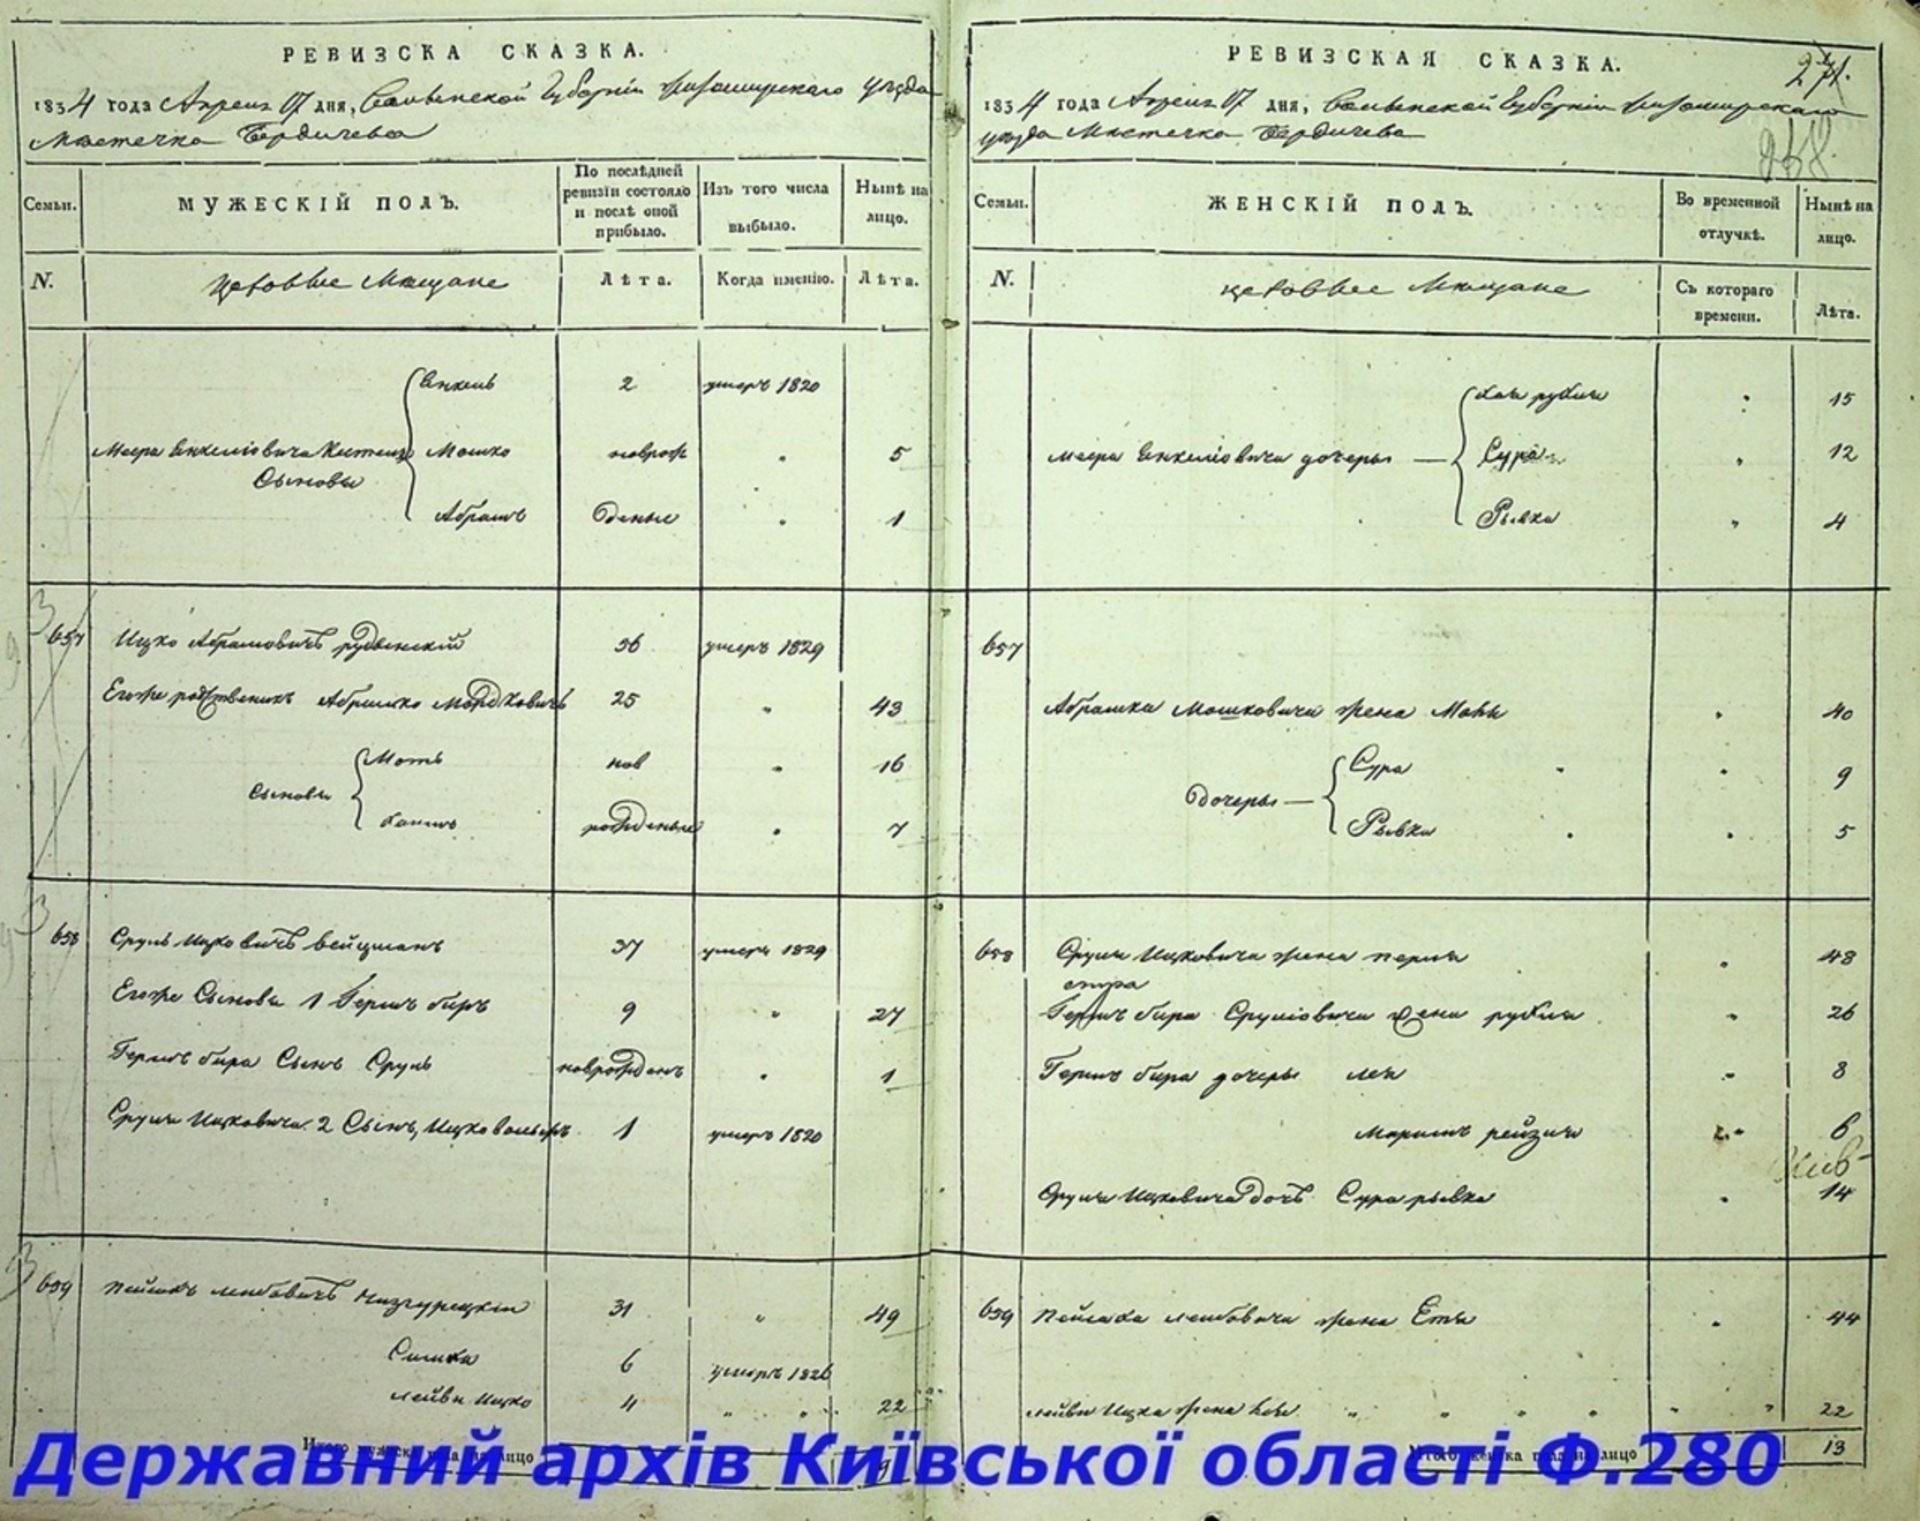 РЕВИЗСКА СКАЗКА.
1834 года Апреля 07 дня, Волынской Губернии Житомирского уезда
Местечка Бердичева
Семьи.
МУЖЕСКІЙ ПОЛЪ.
По послѣдней ревизіи состояло и послѣ оной прибыло.
Изъ того числа выбыло.
Нынѣ на лицо.
N.
цеховые Мещане
Лѣта.
Когда имянно.
Лѣта.
Янкель 2 умеръ 1820
Меера Янкеліовича
Сыновья
Мошко новрож 5
Абрамъ деные 1
657 Ицко Абрамовичъ рудвенскій 36 умеръ 1829
Егоже родственикъ Абрашко Мордковичъ 25 43
Сыновья
Моть нов 16
Хаимъ рожденые 7
658 Сруль Ицковичъ вейцманъ 37 умеръ 1829
Егоже Сыновья 1 Гершъ беръ 9 27
Гершъ бера Сынъ Сруль новрожденъ 1
Сруля Ицковича 2 Сынъ, Ицко вольфъ 1 умеръ 1820
659 Пейсахъ лейбовичъ 31 49
Симха 6 умеръ 1826
лейви Ицко 4 22
Итого мужеска пола на лицо 9
РЕВИЗСКАЯ СКАЗКА.
271.
268
1834 года Апреля 07 дня, Волынской Губернии Житомирского
уезда Местечка Бердичева
Семьи.
ЖЕНСКІЙ ПОЛЪ.
Во временной отлучкѣ.
Нынѣ на лицо.
N.
цеховые Мещане
Съ котораго времени.
Лѣта.
Хая рухля 15
Меера Янкеліовича дочеры
Сура 12
Рывка 4
657
Абрашка Мошковича жена 40
Дочеры
Сура 9
Рывка 5
658 Сруля Ицковича жена перля 48
Гершъ бера Сруліовича жена рухля 26
Гершъ бера дочеры лея 8
Марьямъ рейзля 6
Сруля Ицковича дочь Сура рывка 14
659 Пейсаха лейбовича жена Етя 44
лейви Ицка жена хая 22
Итого женска пола на лицо 13
Державний архів Київської області Ф.280